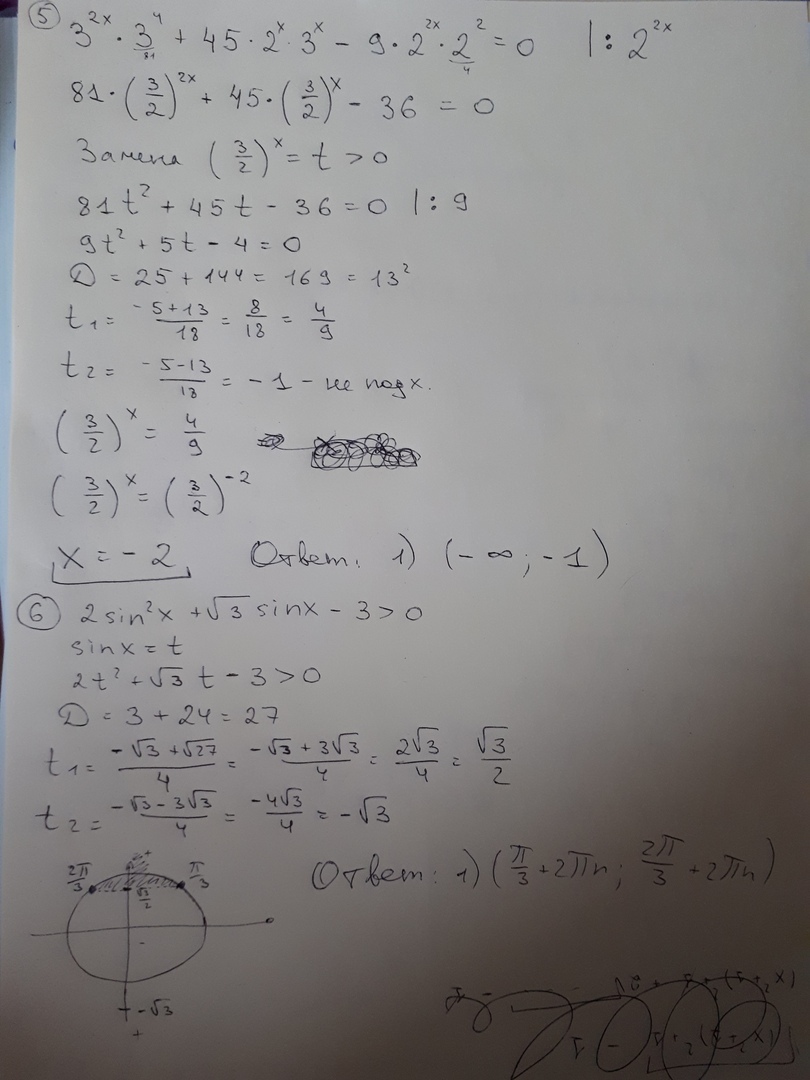 5) 3^{2x} · 3^4 + 45 · 2^x · 3^x - 9 · 2^{2x} · 2^2 = 0 |: 2^{2x}
81 4
81 · (3/2)^{2x} + 45 · (3/2)^x - 36 = 0
Замена (3/2)^x = t > 0
81t² + 45t - 36 = 0 |: 9
9t² + 5t - 4 = 0
D = 25 + 144 = 169 = 13²
t1 = (-5+13)/18 = 8/18 = 4/9
t2 = (-5-13)/18 = -1 - не подх.
(3/2)^x = 4/9
(3/2)^x = (3/2)^{-2}
x = -2 Ответ: 1) (-∞; -1)
6) 2sin²x + √3 sinx - 3 > 0
sinx = t
2t² + √3 t - 3 > 0
D = 3 + 24 = 27
t1 = (-√3 + √27)/4 = (-√3 + 3√3)/4 = 2√3/4 = √3/2
t2 = (-√3 - 3√3)/4 = -4√3/4 = -√3
2π/3 + π/3
√3/2
Ответ: 1) (π/3 + 2πn; 2π/3 + 2πn)
-
-√3
+